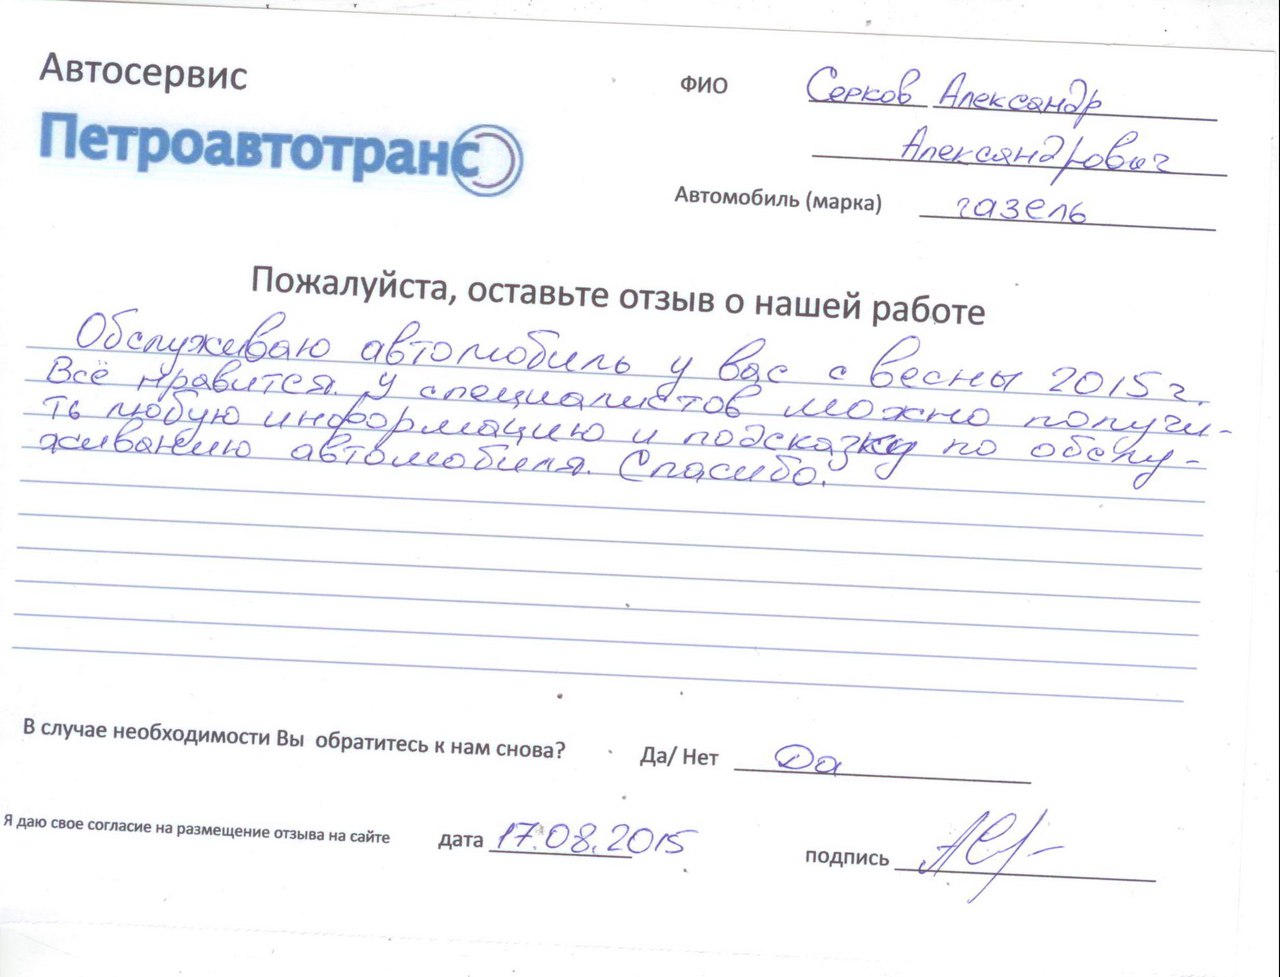 Автосервис
Петроавтотранс
ФИО Серков Александр
Александрович
Автомобиль (марка) газель
Пожалуйста, оставьте отзыв о нашей работе
Обслуживаю автомобиль у вас с весны 2015 г.
Всё нравится. У специалистов можно получи-
ть любую информацию и подсказку по обслу-
живанию автомобиля. Спасибо.
В случае необходимости Вы обратитесь к нам снова? Да/ Нет Да
Я даю свое согласие на размещение отзыва на сайте дата 17.08.2015 подпись